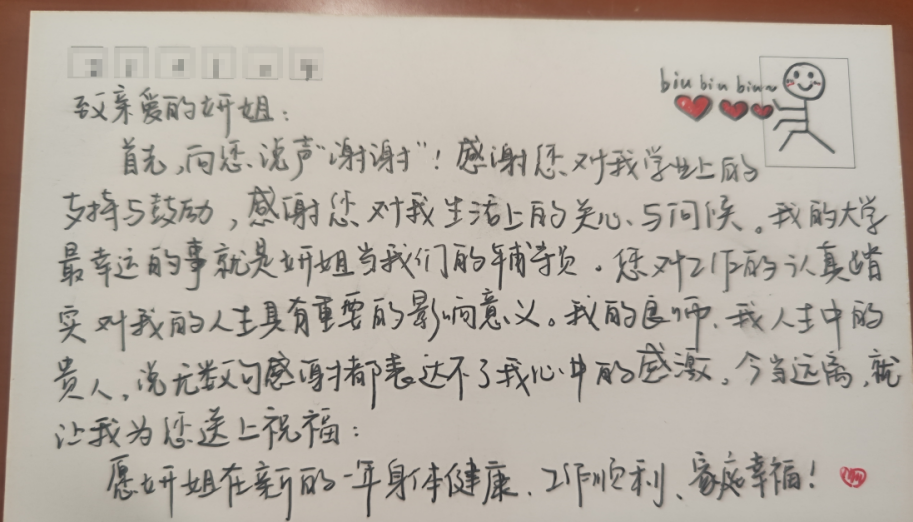 biu biu biu~
致亲爱的妍姐：
首先，向您说声“谢谢”！感谢您对我学业上的
支持与鼓励，感谢您对我生活上的关心与问候。我的大学
最幸运的事就是妍姐当我们的辅导员。您对工作的认真踏
实对我的人生具有重要的影响意义。我的良师、我人生中的
贵人，说无数句感谢都表达不了我心中的感激。今当远离，就
让我为您送上祝福：
愿妍姐在新的一年身体健康、工作顺利、家庭幸福！